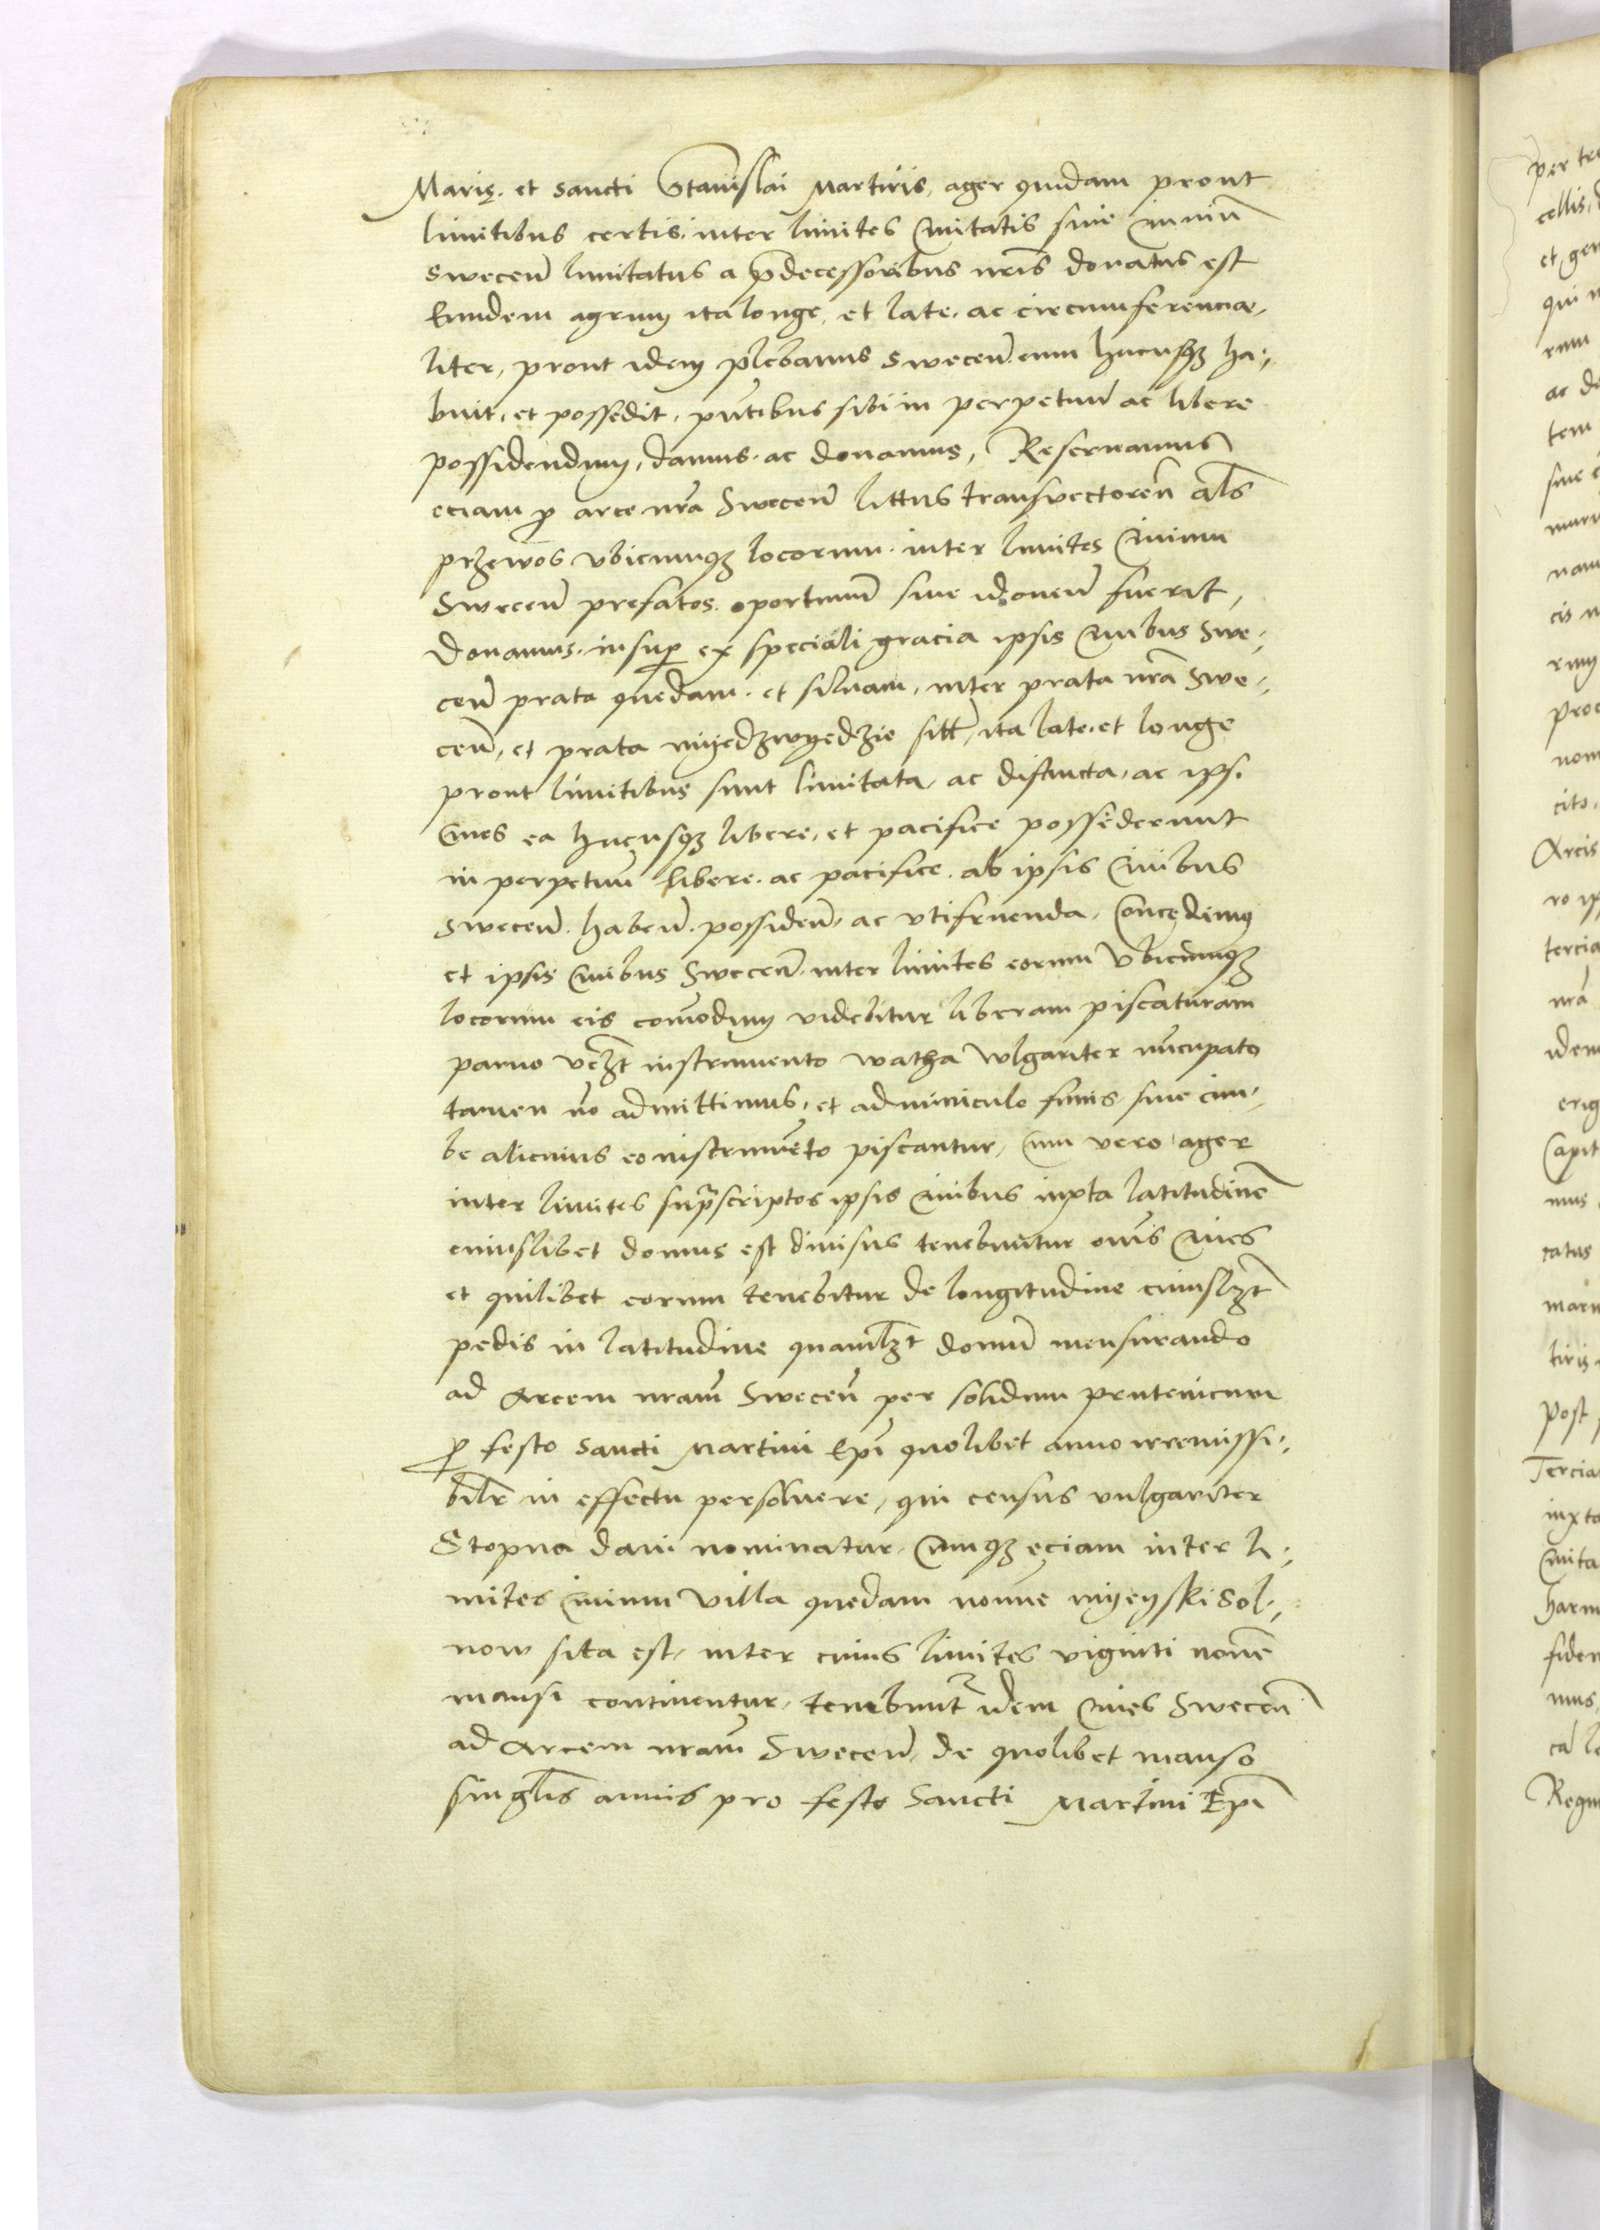 Marię. et sancti Stanislai Martiris, ager quidam prout
limitibus certis, inter limites Ciuitatis siue Ciuiũ
Swecen̄ limitatus a p̄decessoribus nr̄is donatus est
Eundem agrum ita longe, et late, ac circumferencia-
liter, prout idem plebanus Swecen̄ eum hucusqꝫ ha-
buit, et possedit, pñtibus sibi in perpetuũ ac libere
possidendum, damus ac donamus, Reseruamus
eciam ꝓ arce nr̄a Swecen̄ littus transvectoreũ al̄s
przewos vbicunqꝫ locorum inter limites Ciuium
Swecen̄ prefatos oportunũ siue idoneũ fuerit,
Donamus insuꝑ ex speciali gracia ipsis Ciuibus Swe-
cen̄ prata quedam et siluam, inter prata nr̄a Swe-
cen̄, et prata myedzwyedzie sitt̄, ita late et longe
prout limitibus sunt limitata ac distincta, ac ipsi
Ciues ea hucusqꝫ libere, et pacifice possederunt
in perpetuũ libere ac pacifice ab ipsis Ciuibus
Swecen̄ haben̄ possiden̄ ac vtifruenda, Concedimus
et ipsis Ciuibus Swecen̄ inter limites eorum Vbicunqꝫ
locorum eis com̄odum videbitur liberam piscaturam
paruo vꝫt instrumento watha wlgariter nũcupato
tamen nō admittimus, et adminiculo funis siue cim-
be alicuius eo instrumẽto piscantur, Cum vero ager
inter limites sup̃scriptos ipsis Ciuibus iuxta latitudinẽ
cuiuslibet domus est diuisus tenebuntur om̄s Ciues
et quilibet eorum tenebitur de longitudine cuiuslꝫt
pedis in latitudine quamlꝫt domũ mensurando
ad Arcem nr̄am Swecen̄ per solidum prutenicum
ꝓ festo Sancti Martini Ep̄i quolibet anno irremissi-
bilr̄ in effectu persoluere, qui census vulgariter
Stopna dan nominatur, Cumqꝫ eciam inter li-
mites Ciuium Villa quedam nom̄e myeyski Sol-
now sita est, inter cuius limites viginti nouẽ
mansi continentur, tenebunt̃ idem Ciues Swecen̄
ad Arcem nr̄am Swecen̄, de quolibet manso
singl̄is annis pro festo Sancti Martini Ep̄i